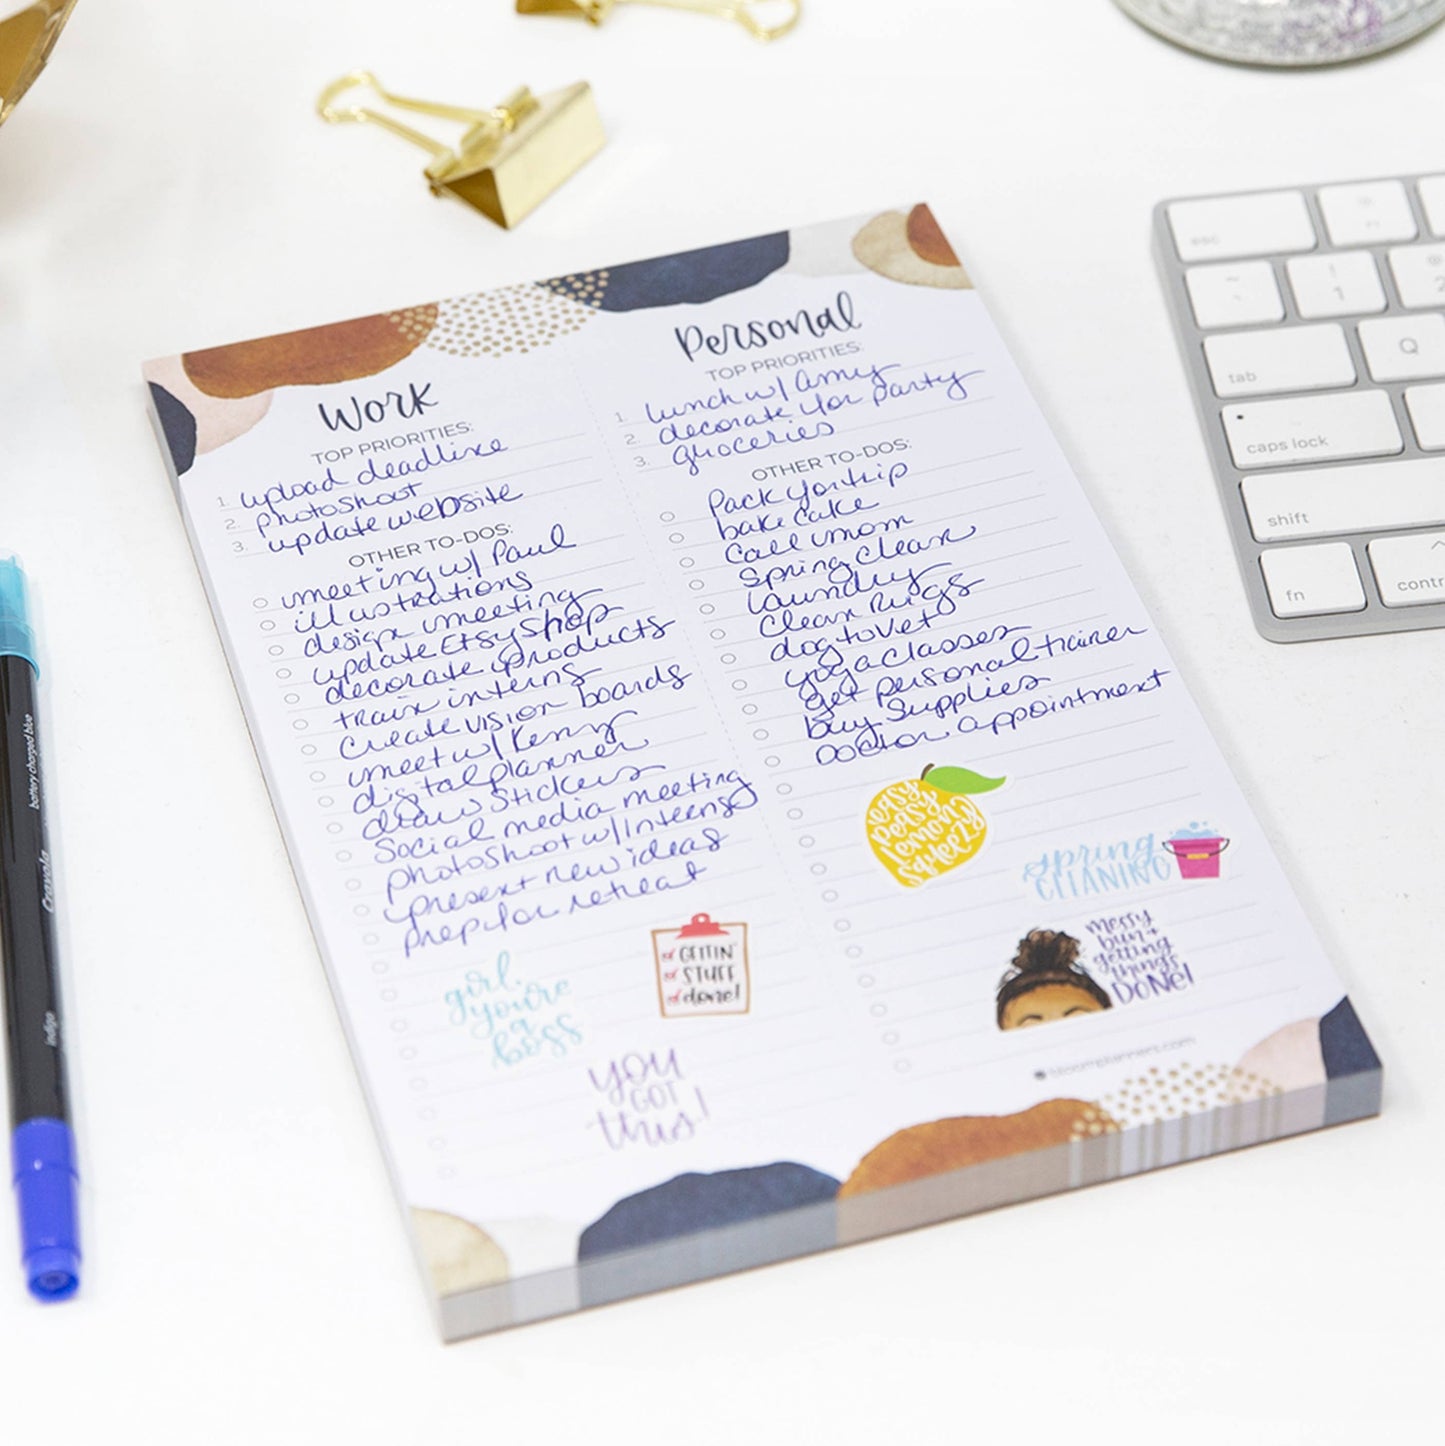 Work
TOP PRIORITIES:
1. upload deadline
2. photoshoot
3. update website
OTHER TO-DOS:
meeting w/ Paul
illustrations
design meeting
update Etsy shop
decorate products
train interns
create vision boards
meet w/ Kenny
digital planner
draw stickers
social media meeting
photoshoot w/ interns
present new ideas
prep for retreat
girl,
you're
a
boss
GETTIN'
STUFF
done!
you
GOT
this!
Personal
TOP PRIORITIES:
1. lunch w/ amy
2. decorate for party
3. groceries
OTHER TO-DOS:
Pack for trip
bake cake
call mom
Spring clean
laundry
clean rugs
dog to vet
yoga classes
get personal trainer
buy supplies
Doctor appointment
easy
peasy
lemon
squeezy
spring
CLEANING
messy
bun +
getting
things
DONE!
bloomplanners.com
battery charged blue
Crayola
indigo
esc
~
!
1
@
2
tab
Q
caps lock
shift
fn
contr